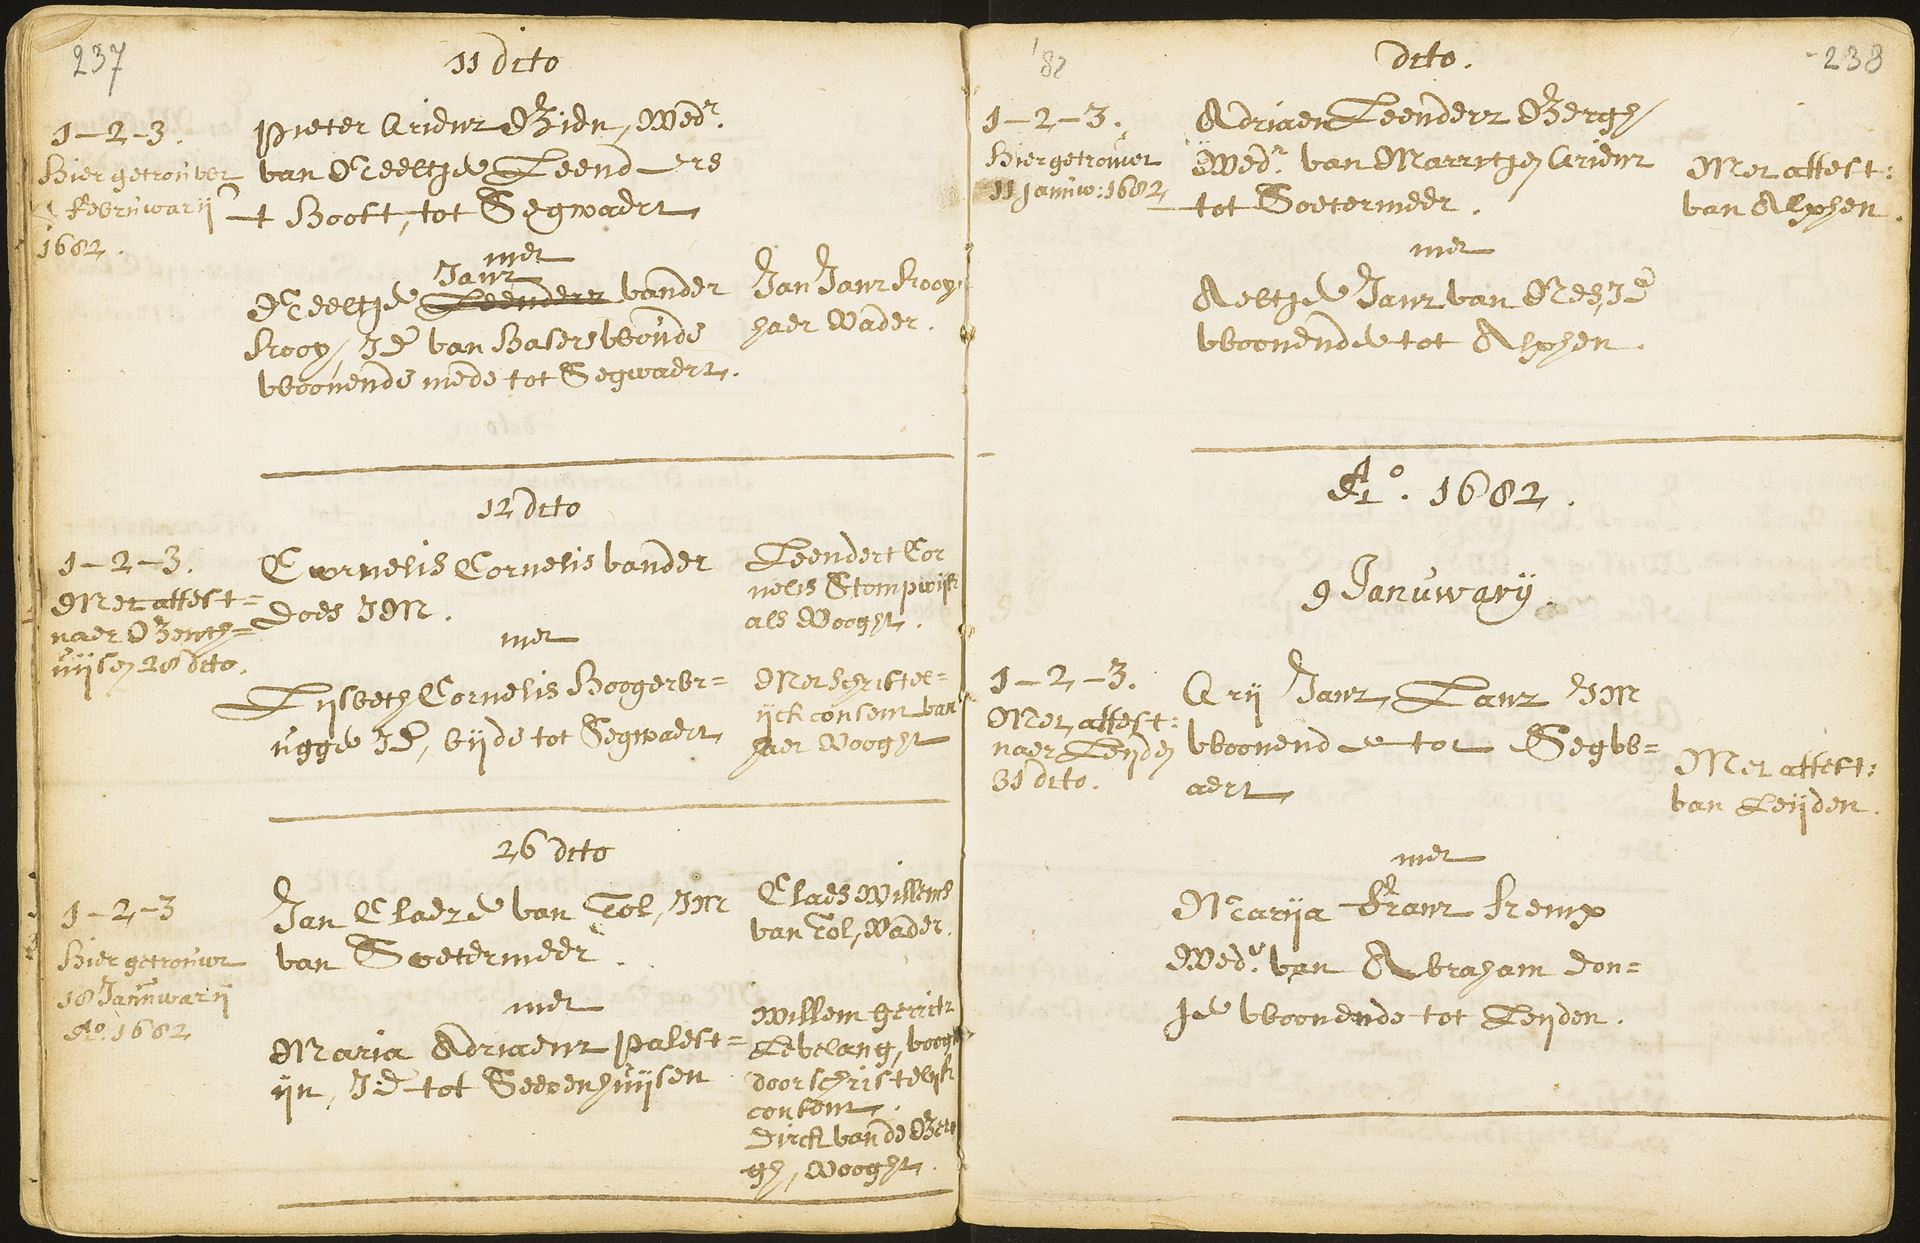 237
11 dito
1-2-3.
Hier getrouwet
Februwarij
1682.
Pieter Ariensz Bijln, Wedr.
van Neeltje Leenders
t Hooft, tot Segwaert
met
Jansz
Neeltje Leendersz vander
Krooy, JD van Haserswoude
woonende mede tot Segwaert.
Jan Jansz Krooy,
haer Vader.
12 dito
1-2-3.
Met attest=
naer Benth=
uijsen 28 dito.
Cornelis Cornelis vander
Does JM.
met
Lijsbeth Cornelis Hoogerbr=
ugge JD, bijde tot Segwaert
Leendert Cor
nelis Stompwijk
als Vooght.
Met schriftel=
ijck consent van
haer Vooght
26 dito
1-2-3
Hier getrouwt
18 Januwarij
Ao. 1682
Jan Claesze van Tol, JM
van Soetermeer.
met
Maria Adriaensz Palest=
ijn, JD tot Seevenhuijsen
Claes Willems
van Tol, Vader.
Willem Gerritz
Levelang, voogt
door schriftelijk
consent.
Dirck van de Ber
gh, Vooght.
'82
dito.
-238
1-2-3.
Hier getrouwet
11 Januw: 1682
Adriaen Leendersz Bergh,
Wedr. van Marritje Ariensz
tot Soetermeer.
met
Aeltje Jansz van Nes, JD
woonende tot Alphen.
Met attest:
van Alphen.
Ao. 1682.
9 Januwarij.
1-2-3.
Met attest:
naer Leijden
31 dito.
Arij Jansz Lansz JM
woonende tot Segw=
aert
met
Marija Fransz Kemp
Wedu. van Abraham Don=
je woonende tot Leijden.
Met attest:
van Leijden.